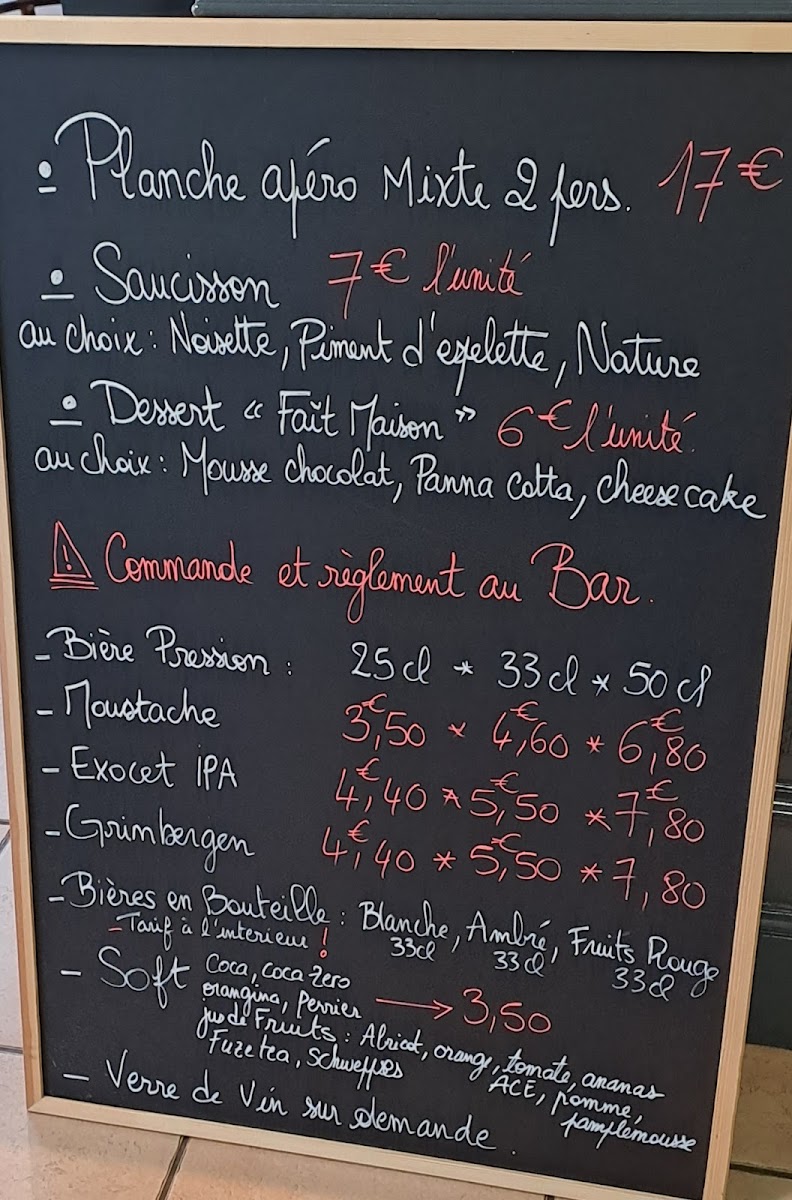 • Planche apéro Mixte 2 pers. 17€
• Saucisson 7€ l'unité
au choix : Noisette, Piment d'espelette, Nature
• Dessert " Fait Maison " 6€ l'unité.
au choix : Mousse chocolat, Panna cotta, cheese cake
⚠ Commande et règlement au Bar.
- Bière Pression : 25 cl * 33 cl * 50 cl
- Moustache 3,€50 * 4,€60 * 6,€80
- Exocet IPA 4,€40 * 5,€50 * 7,€80
- Grimbergen 4,€40 * 5,€50 * 7,80
- Bières en Bouteille : Blanche, Ambré, Fruits Rouge
- Tarif à l'interieur ! 33cl 33cl 33cl
- Soft Coca, coca zero
orangina, Perrier → 3,50
jus de Fruits : Abricot, orange, tomate, ananas
Fuze tea, Schweppes ACE, pomme,
pamplemousse
- Verre de Vin sur demande.